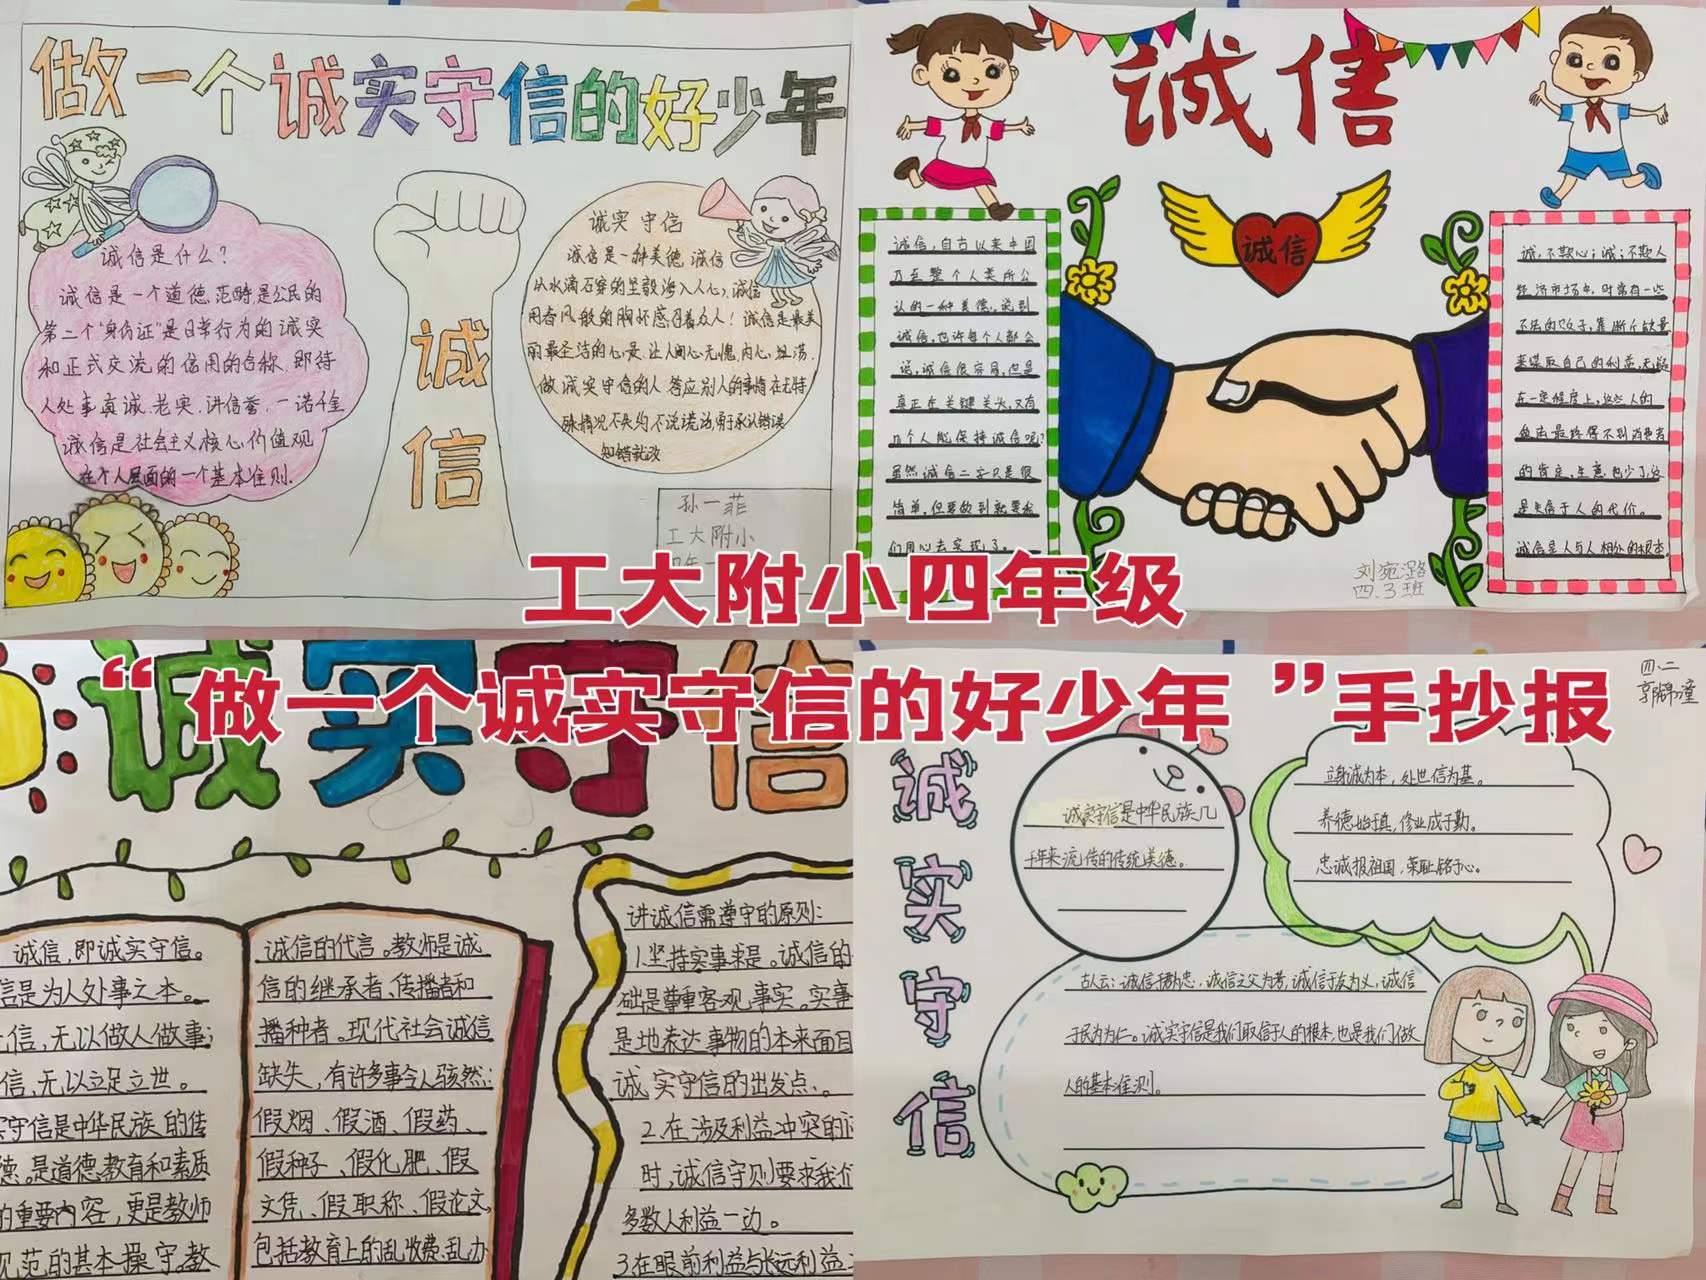 做一个诚实守信的好少年
诚信是什么?
诚信是一个道德范畴是公民的
第二个“身份证”是日常行为的诚实
和正式交流的信用的合称.即待
人处事真诚、老实、讲信誉,一诺千金
诚信是社会主义核心价值观
在个人层面的一个基本准则.
诚信
诚实 守信
诚信是一种美德,诚信
从水滴石穿的坚毅海入人心,诚信
用春风般的胸怀感召着众人!诚信是最美
丽最圣洁的心灵,让人问心无愧,内心坦荡.
做诚实守信的人,答应别人的事情在无特
殊情况不失约不说谎话,勇于承认错误
知错就改
孙一菲
工大附小
诚信
诚信
诚信,自古以来中国
乃至整个人类所公
认的一种美德。说到
诚信,也许每个人都会
说,诚信很容易,但是
真正在关键关头,又有
几个人能保持诚信呢?
虽然诚信二字只是很
简单,但要做到就要我
们用心去实现了。
诚,不欺心;诚;不欺人
经济市场中,时常有一些
不法的分子,靠断斤缺量
来谋取自己的利益,无疑
在一定程度上,这些人的
做法最终得不到消费者
的肯定,生意也少了,这
是失信于人的代价。
诚信是人与人相处的根本.
刘宛潞
四.3班
工大附小四年级
“做一个诚实守信的好少年”手抄报
诚实守信
诚信,即诚实守信。
信是为人处事之本。
信,无以做人做事;
信,无以立足立世。
实守信是中华民族的传
德。是道德教育和素质
的重要内容,更是教师
规范的基本操守。教
诚信的代言。教师是诚
信的继承者、传播者和
播种者。现代社会诚信
缺失,有许多事令人骇然:
假烟、假酒、假药、
假种子、假化肥、假
文凭、假职称、假论文,
包括教育上的乱收费、乱办
讲诚信需遵守的原则:
1.坚持实事求是。诚信的
础是尊重客观事实。实事
是地表达事物的本来面目
诚实守信的出发点。
2.在涉及利益冲突的问
时,诚信守则要求我们
多数人利益一边。
3.在眼前利益与长远利益
四.二
诚实守信
诚实守信是中华民族几
千年来流传的传统美德。
立身诚为本,处世信为基。
养德始于真,修业成于勤。
忠诚报祖国,荣耻铭于心。
古人云:诚信于君为忠,诚信于父为孝,诚信于友为义,诚信
于民为仁。诚实守信是我们取信于人的根本,也是我们做
人的基本准则。